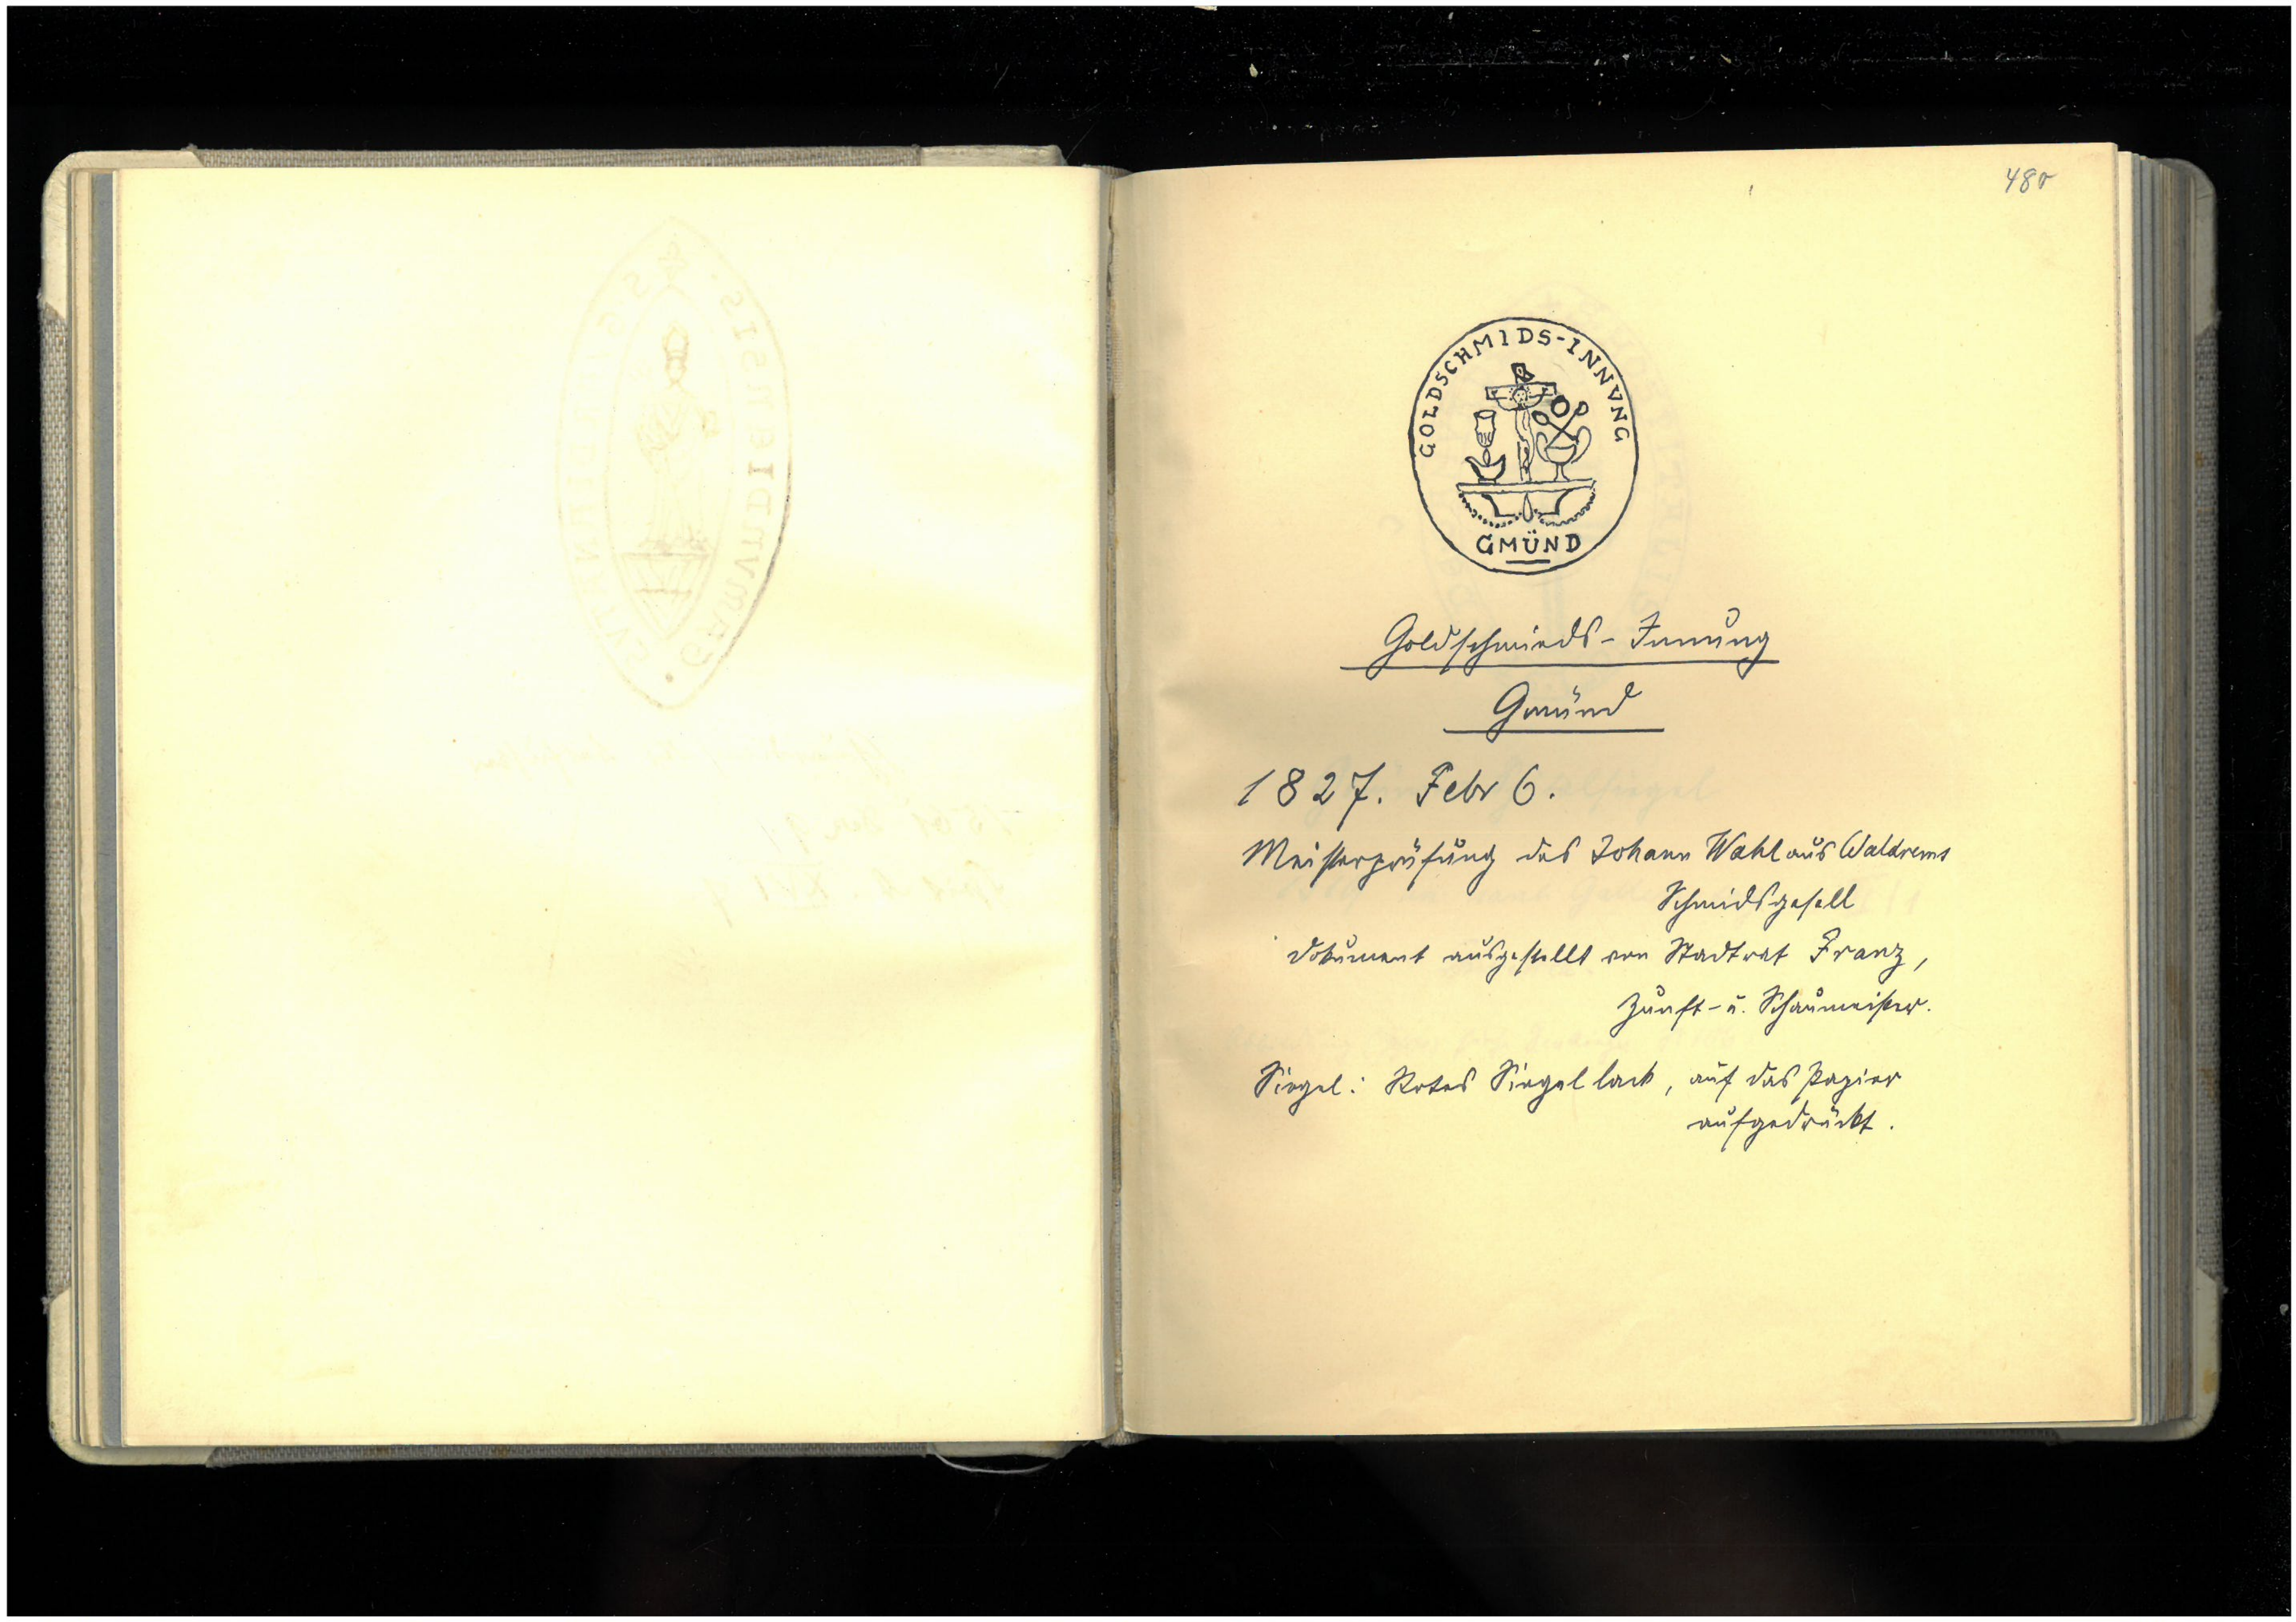 48r
GOLDSCHMIDS-INNVNG
GMÜND
Goldschmieds-Innung
Gmünd
1827. Febr 6.
Meisterprüfung des Johann Wahl aus Waldrems
Schmidsgesell
Dokument ausgestellt von Stadtrat Franz,
Zunft- u. Schaumeister.
Siegel: Rotes Siegellack, auf das Papier
aufgedrückt.